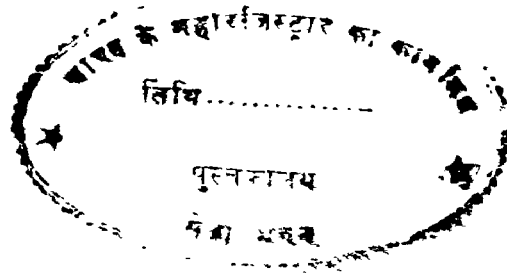 भारत के महारजिस्ट्रार का कार्यालय
तिथि..............
पुस्तकालय